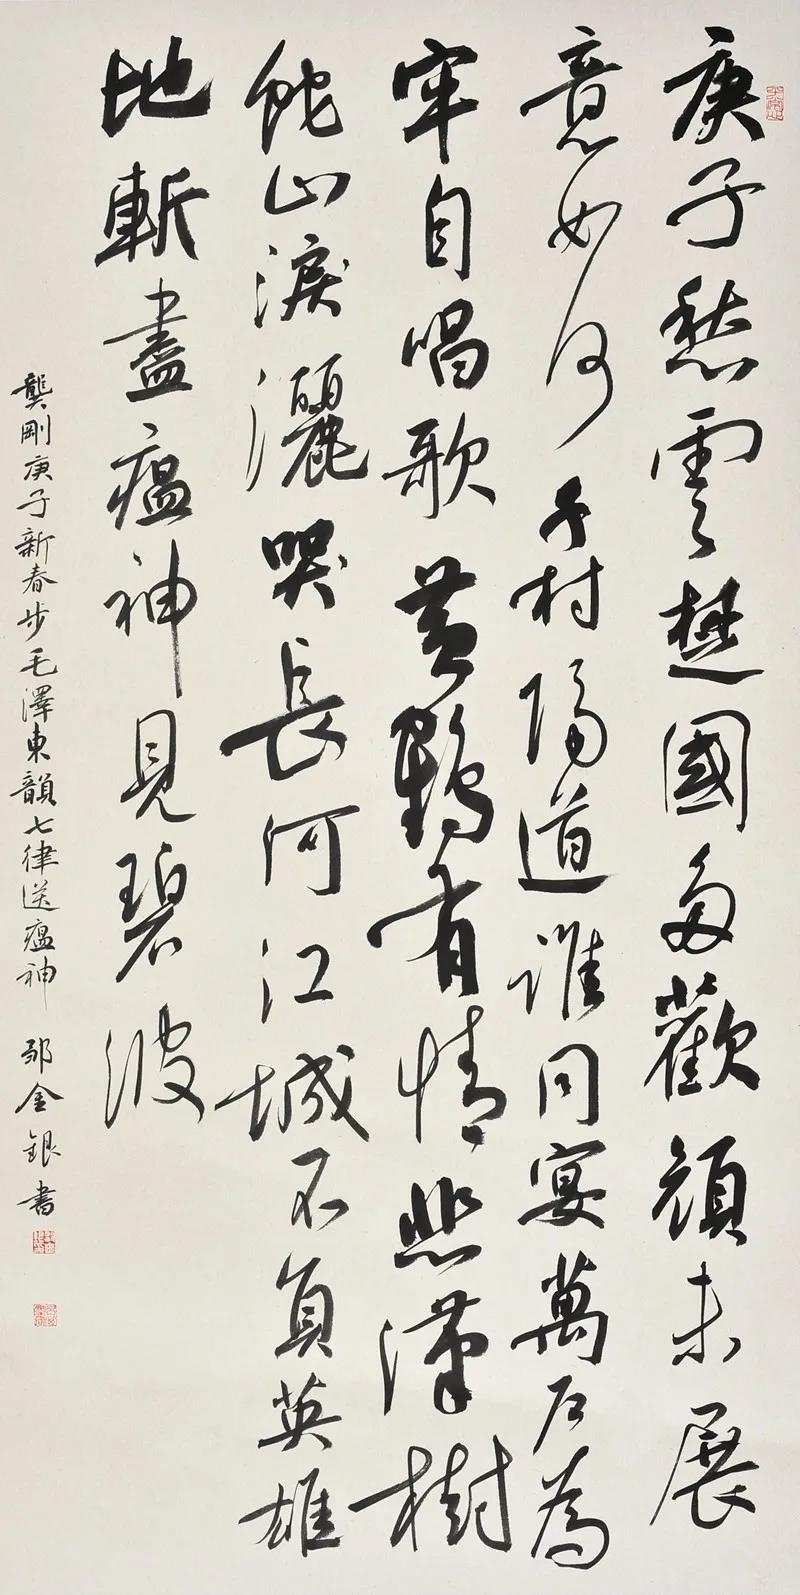 庚子愁雲楚國多歡顏未展
意如何千村隔道誰同宴萬戶為
牢自唱歌黃鶴有情悲漢樹
蛇山淚灑哭長河江城不負英雄
地斬盡瘟神見碧波
龔剛庚子新春步毛澤東韻七律送瘟神 鄒金銀書